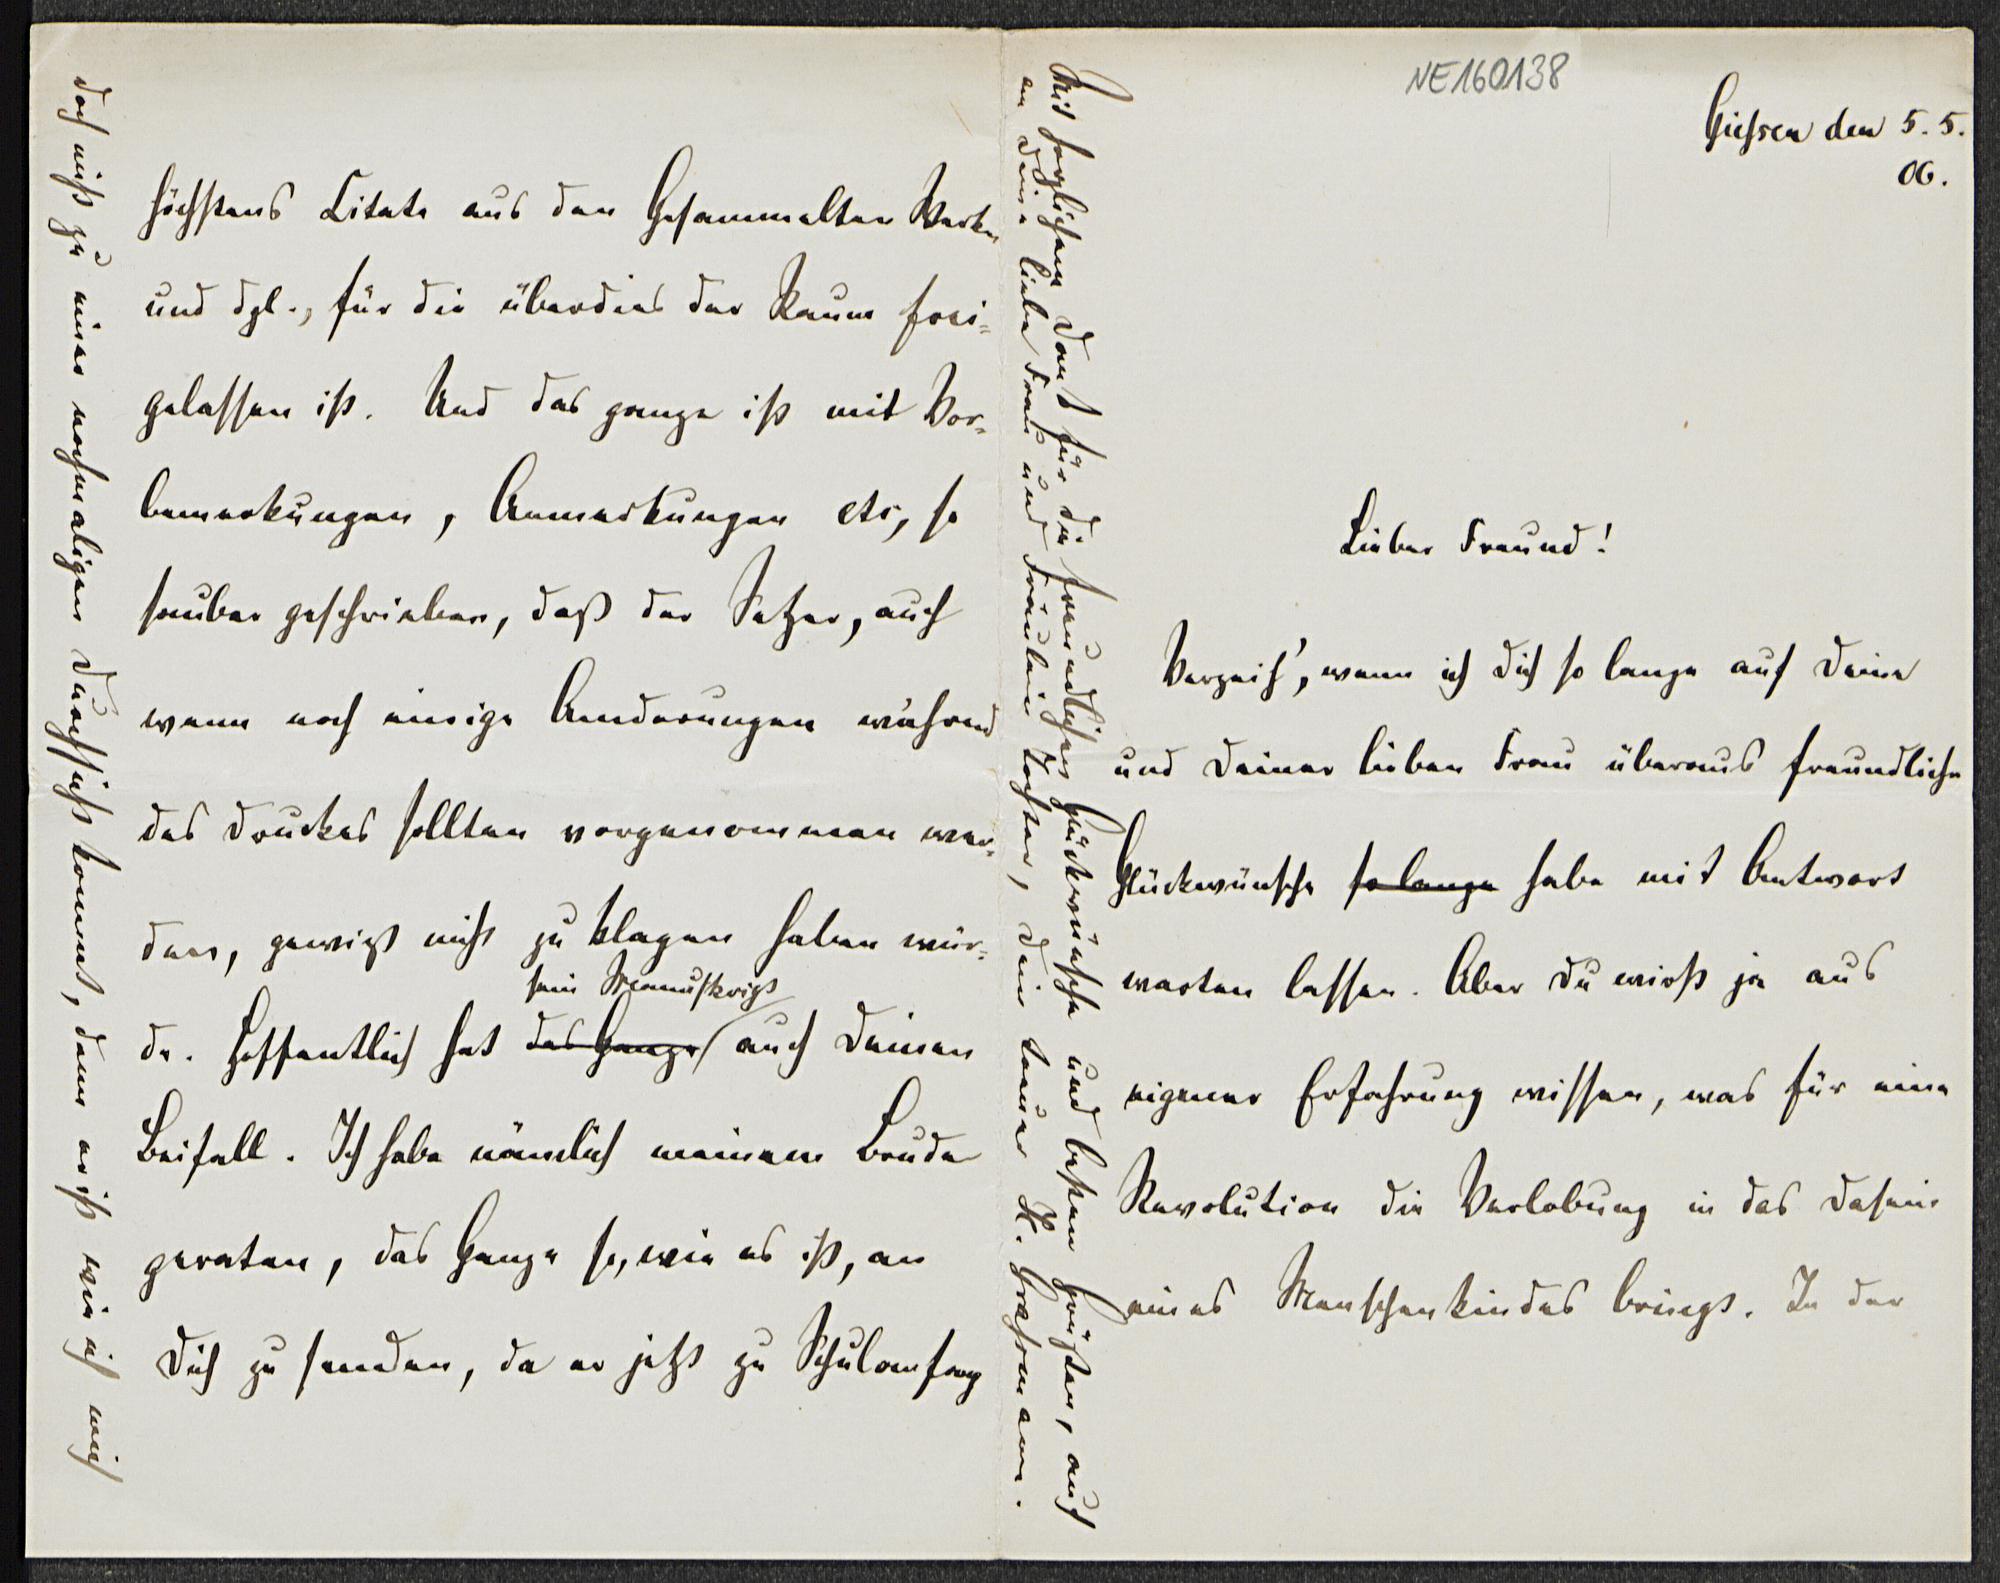 NE160138
Giessen den 5. 5.
06.
Lieber Freund!
Verzeih', wenn ich Dich so lange auf Deine
und Deiner lieben Frau überaus freundliche
Glückwünsche so lange habe mit Antwort
warten lassen. Aber Du wirst ja aus
eigener Erfahrung wissen, was für eine
Revolution die Verlobung in das Dasein
eines Menschenkindes bringt. In der
höchstens Citate aus den Gesammelten Werken
und dgl., für die überdies der Raum frei-
gelassen ist. Und das ganze ist mit Vor-
bemerkungen, Anmerkungen etc, so
sauber geschrieben, daß der Setzer, auch
wenn noch einige Änderungen während
des Druckes sollten vorgenommen wer-
den, gewiß nicht zu klagen haben wür-
sein Manuskript
de. Hoffentlich hat das Ganze auch Deinen
Beifall. Ich habe nämlich meinem Bruder
geraten, das Ganze so, wie es ist, an
Dich zu senden, da er jetzt zu Schulanfang
doch nicht zu einer nochmaligen Durchsicht kommt, denn er ist wie ich mich
Mit herzlichem Dank für die freundlichen Glückwünsche und besten Grüßen, auch
an Deine liebe Frau und Fräulein Tochter, Dein treuer K.